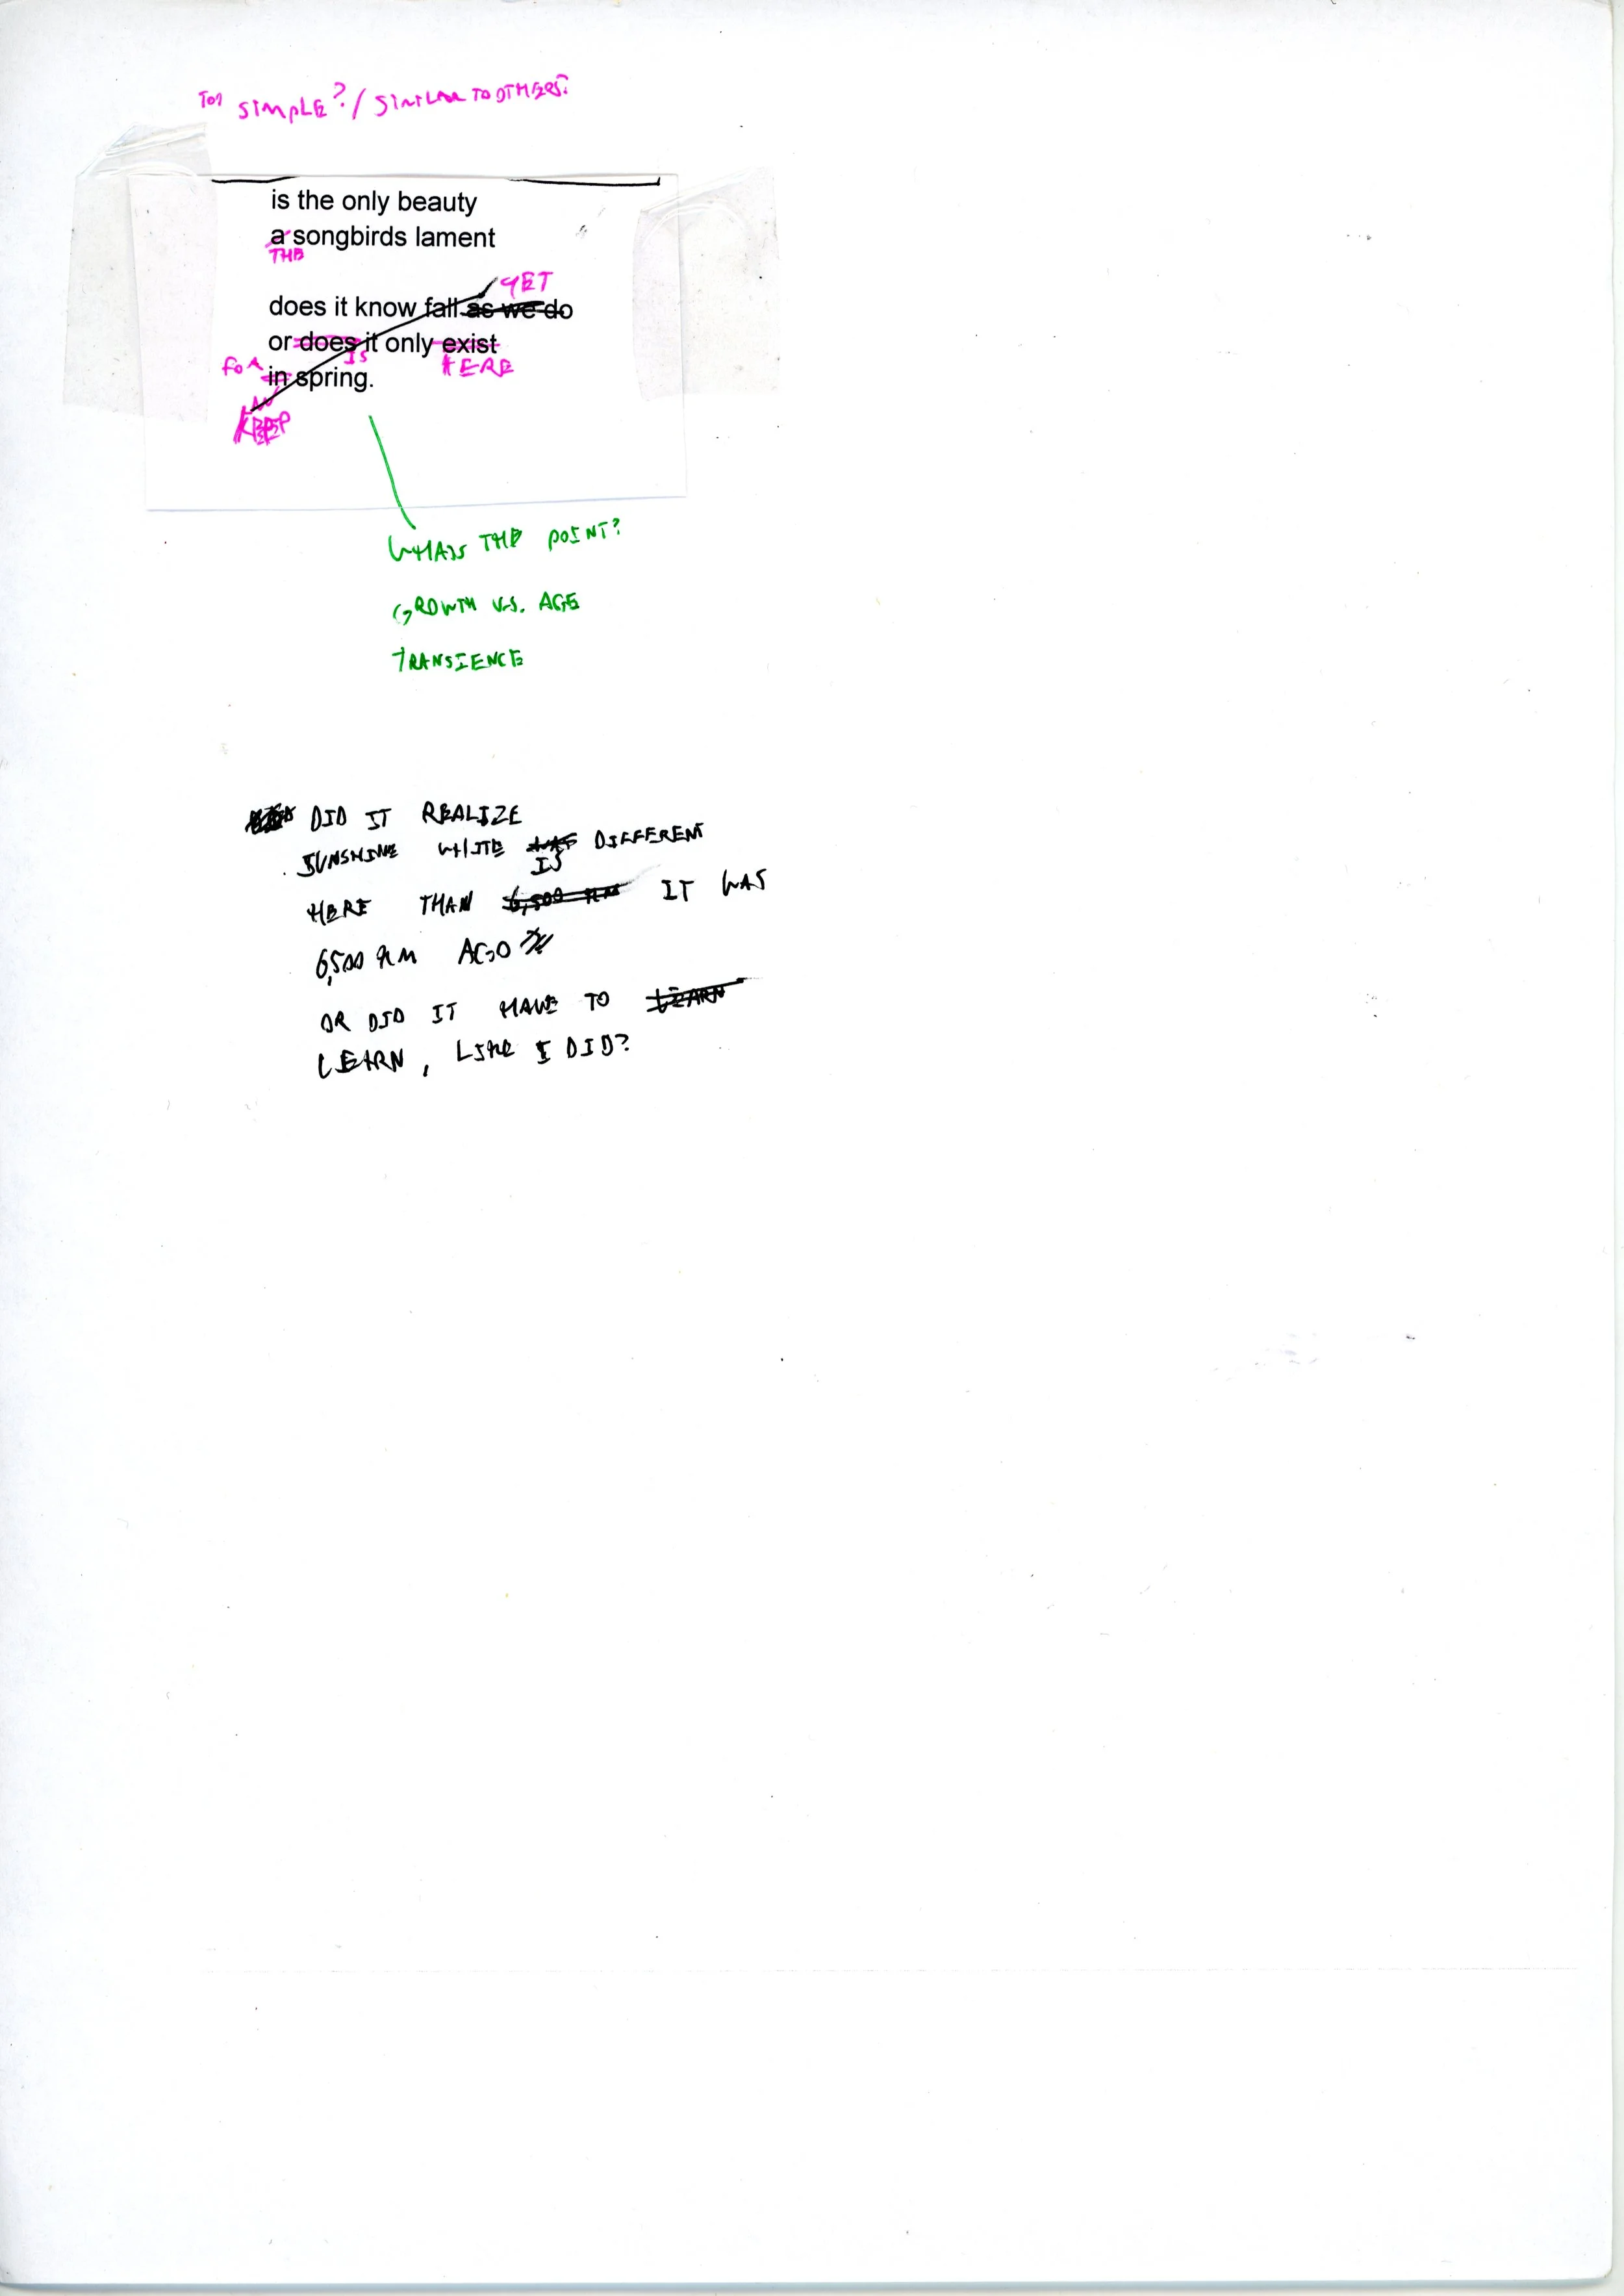 TOO SIMPLE? / SIMILAR TO OTHERS?
is the only beauty
a songbirds lament
THE
YET
does it know fall as we do
or does it only exist
IS HERE
FOR in spring.
KEEP
WHATS THE POINT?
GROWTH V.S. AGE
TRANSIENCE
DID IT REALIZE
SUNSHINE WHITE WAS DIFFERENT
IS
HERE THAN 6,500 KM IT WAS
6,500 KM AGO
OR DID IT HAVE TO LEARN
LEARN, LIKE I DID?